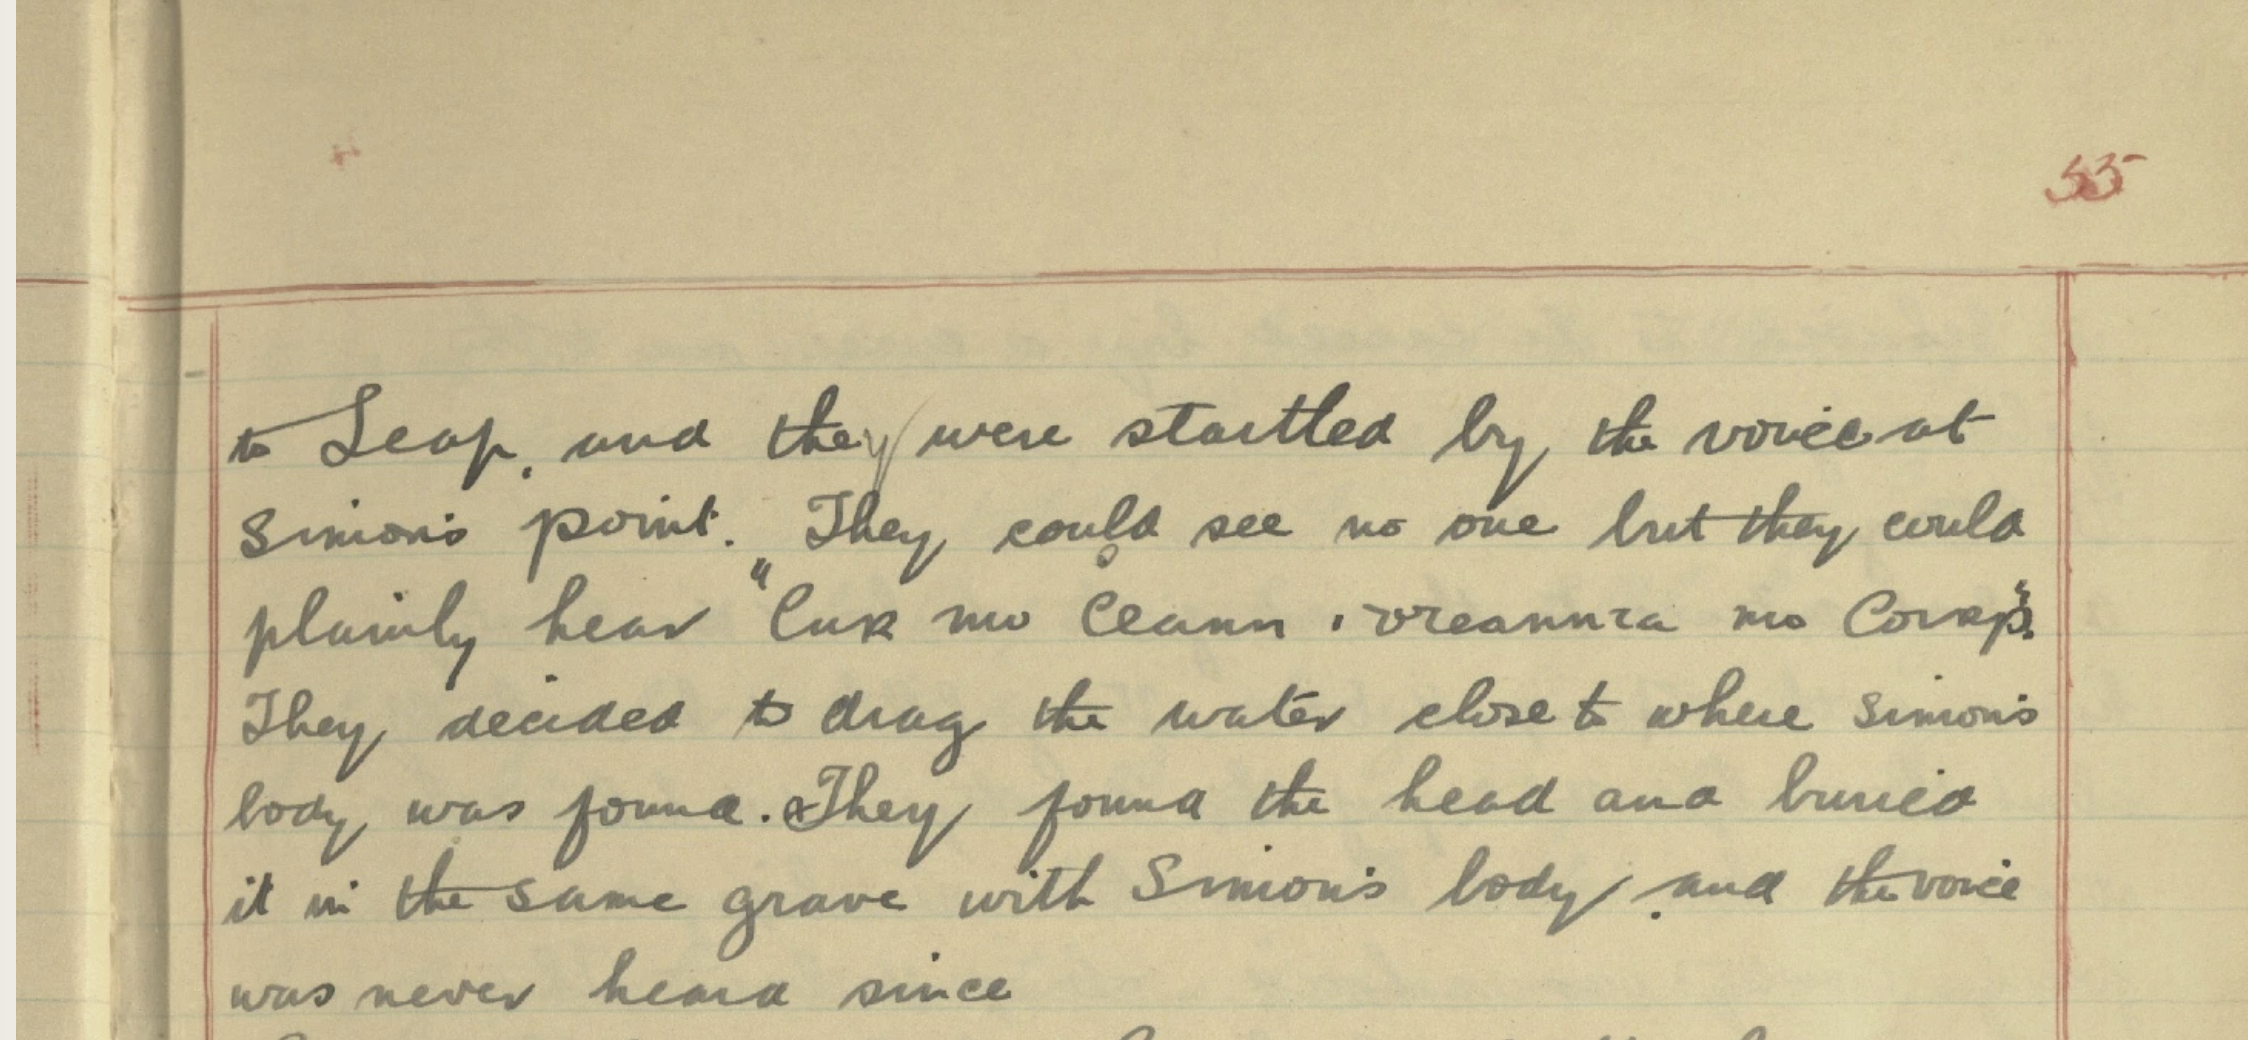 55
to Leap, and they were startled by the voice at
Simon's point. They could see no one but they could
plainly hear "Cuir mo Ceann i dteannta mo Corp".
They decided to drag the water close to where Simon's
body was found. They found the head and buried
it in the same grave with Simon's body, and the voice
was never heard since